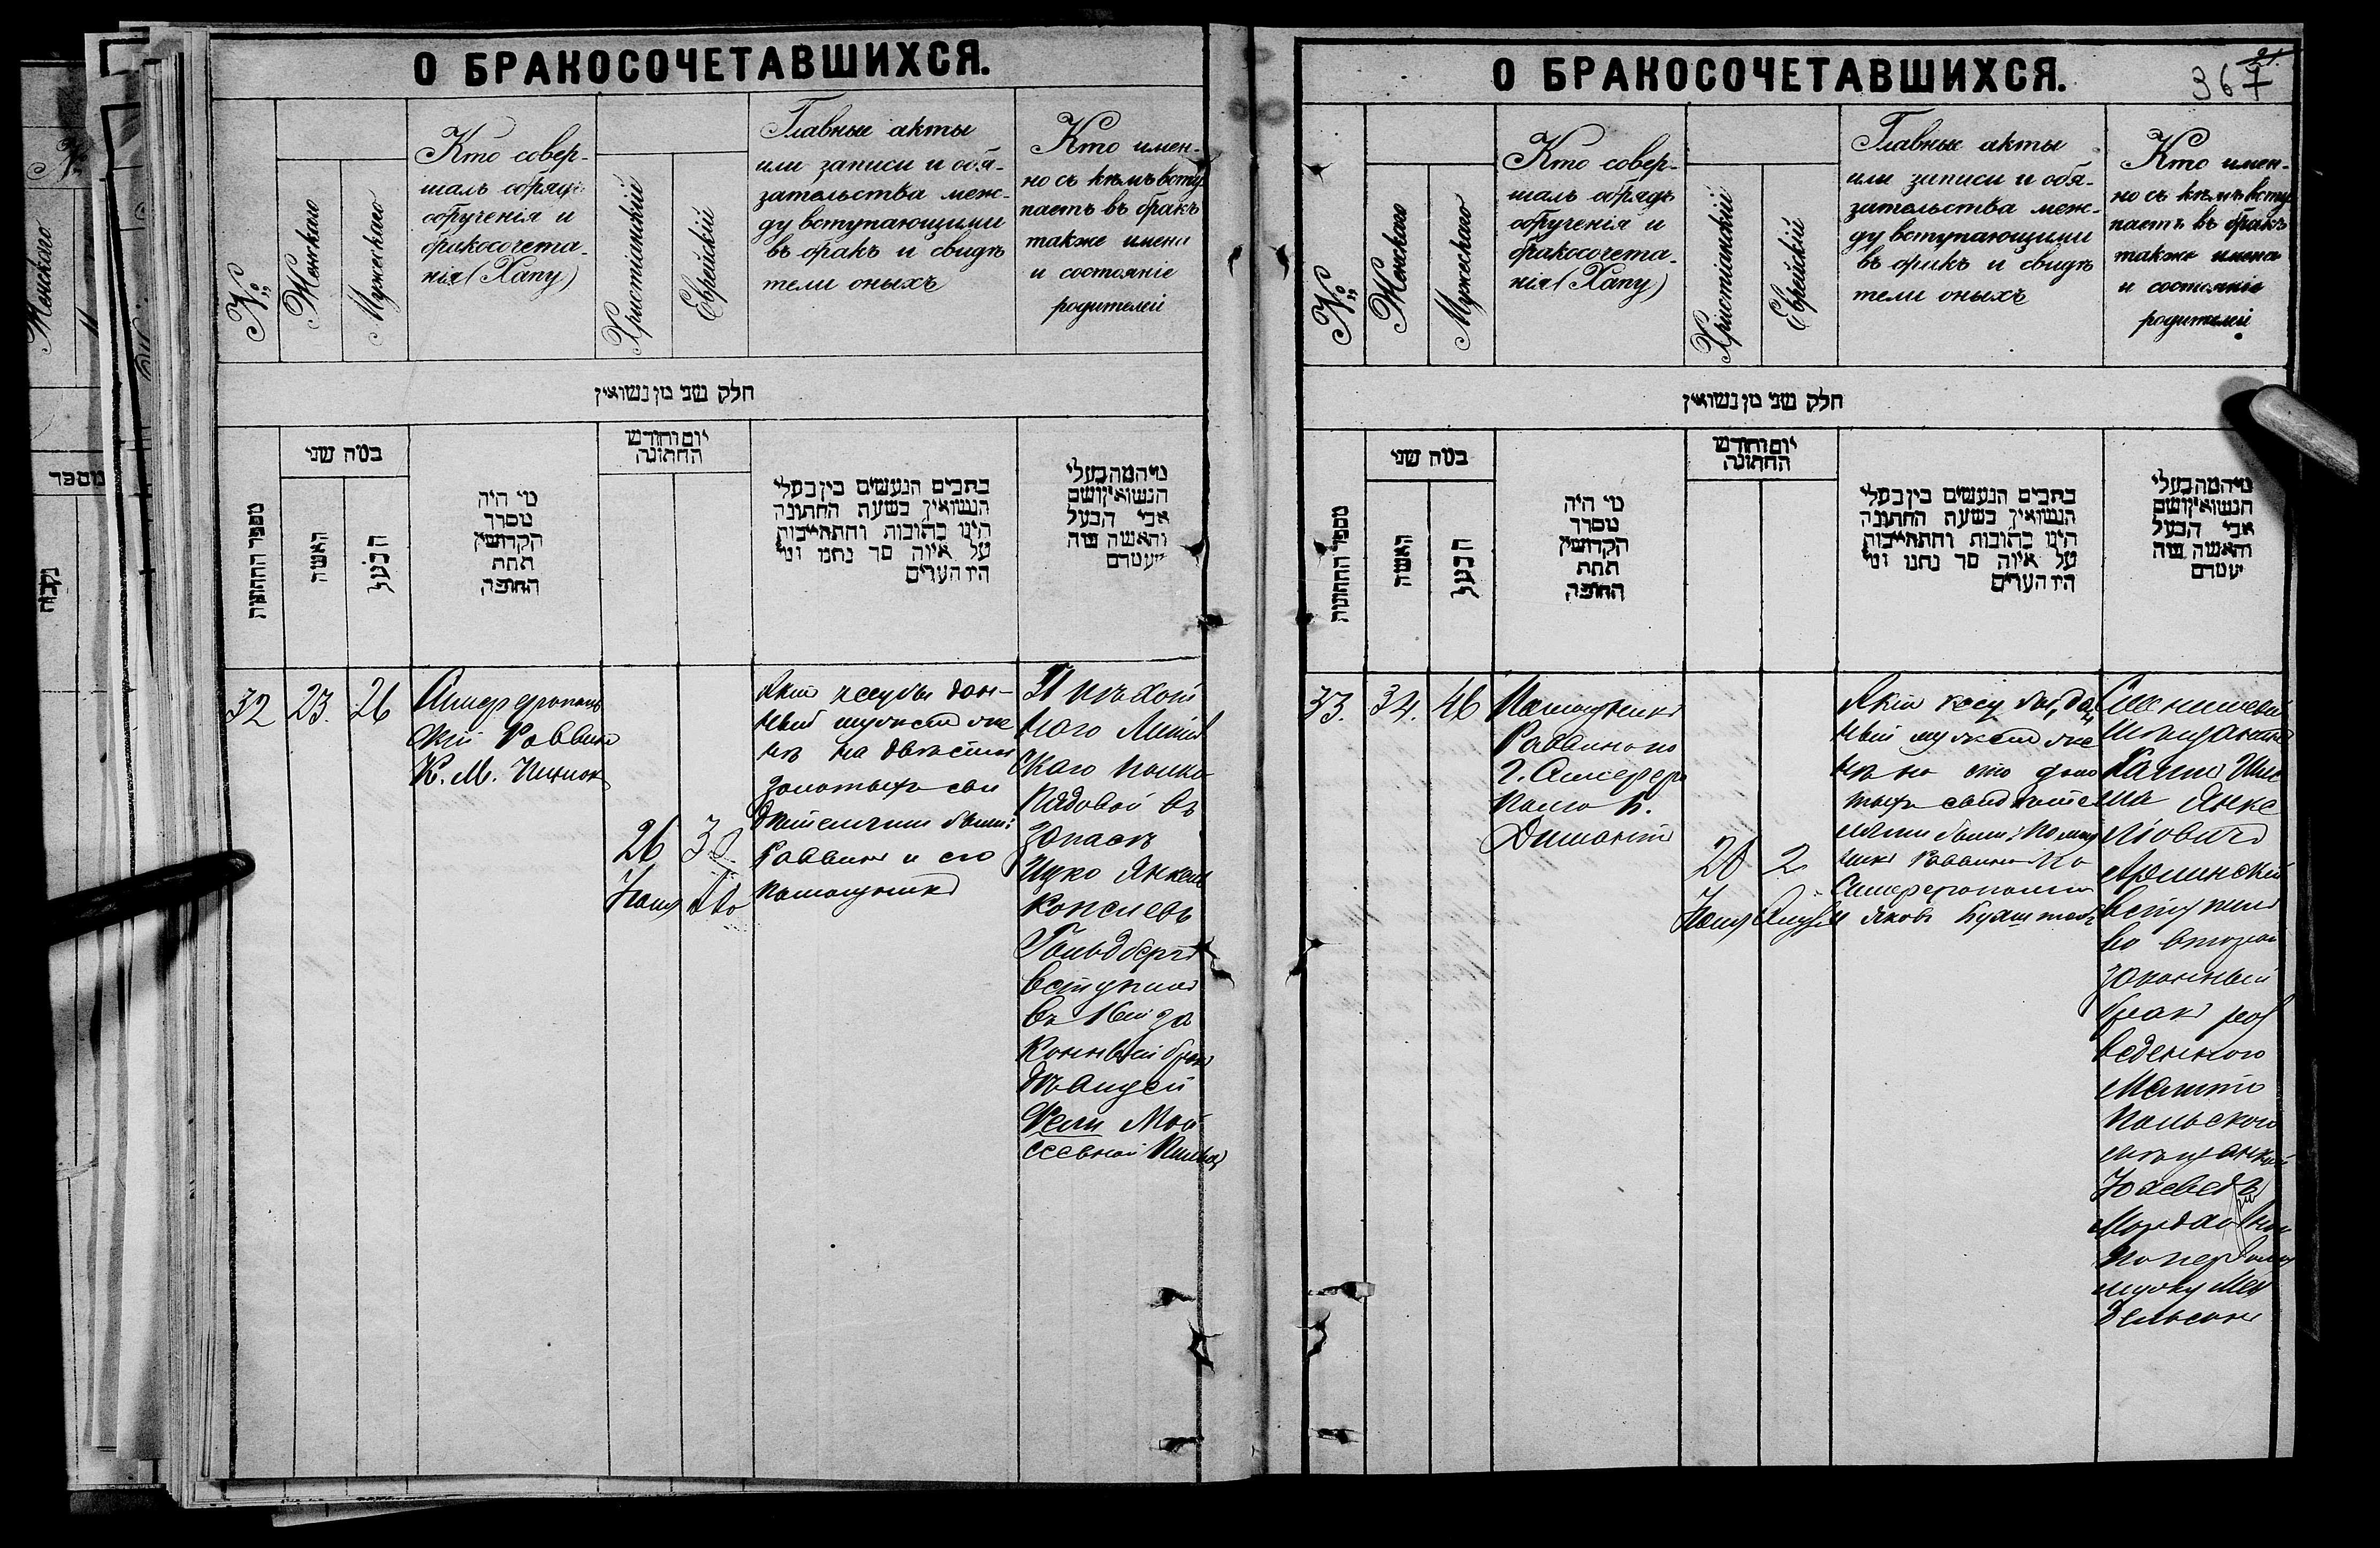 О БРАКОСОЧЕТАВШИХСЯ.
№
Женскаго
Мужескаго
Кто совер-
шалъ обрядъ
обрученія и
бракосочета-
нія (Хапу)
Христіанскій
Еврейскій
Главные акты
или записи и обя-
зательства меж-
ду вступающими
въ бракъ и свидѣ
тели оныхъ
Кто имен-
но съ кѣмъ всту
паетъ въ бракъ
также имена
и состояніе
родителей
חלק שני מן נשואין
מספר החתונות
במה שני
האשה
הבעל
מי היה
מסדר
הקדושין
תחת
החופה
יום וחודש
החתונה
כתבים הנעשים בין בעלי
הנשואין בשעת החתונה
היינו כתובות והתחייבות
על איזה סך נתנו ומי
היו העדים
מי המה בעלי
הנשואין ושם
אבי הבעל
והאשה ומה
מעמדם
32
23.
26
Симферополь
скій Раввинъ
К. М.
26
Іюля
30
Ав
Актъ кесубы дан-
ный мужемъ же
нѣ на двѣсти
золотыхъ сви
дѣтелями были:
Раввинъ и его
помощникъ
пѣхот
наго
скаго полка
Рядовой въ
запасѣ
Ицко Янкель
Гольдбергъ
вступилъ
въ 1ый за
конный бракъ
дѣвицей
Мои
сеевной
О БРАКОСОЧЕТАВШИХСЯ.
367
21
№
Женскаго
Мужескаго
Кто совер-
шалъ обрядъ
обрученія и
бракосочета-
нія (Хапу)
Христіанскій
Еврейскій
Главные акты
или записи и обя-
зательства меж-
ду вступающими
въ бракъ и свидѣ
тели оныхъ
Кто имен-
но съ кѣмъ всту
паетъ въ бракъ
также имена
и состояніе
родителей
חלק שני מן נשואין
מספר החתונות
במה שני
האשה
הבעל
מי היה
מסדר
הקדושין
תחת
החופה
יום וחודש
החתונה
כתבים הנעשים בין בעלי
הנשואין בשעת החתונה
היינו כתובות והתחייבות
על איזה סך נתנו ומי
היו העדים
מי המה בעלי
הנשואין ושם
אבי הבעל
והאשה ומה
מעמדם
33.
34.
46
Помощникъ
Раввина по
г. Симферо
полю
Димантъ
28
Іюля
2
Актъ кесубы, дан
ный мужемъ же
нѣ на сто золо
тыхъ свидѣте
лями были: Помощ
никъ Раввина по
Симферополю
и Яковъ
мѣщанинъ
Янке
левичъ
вступилъ
во второй
законный
бракъ раз
веденною
Мелито
польской
мѣщанкой
по первому
мужу Мен
дельсонъ